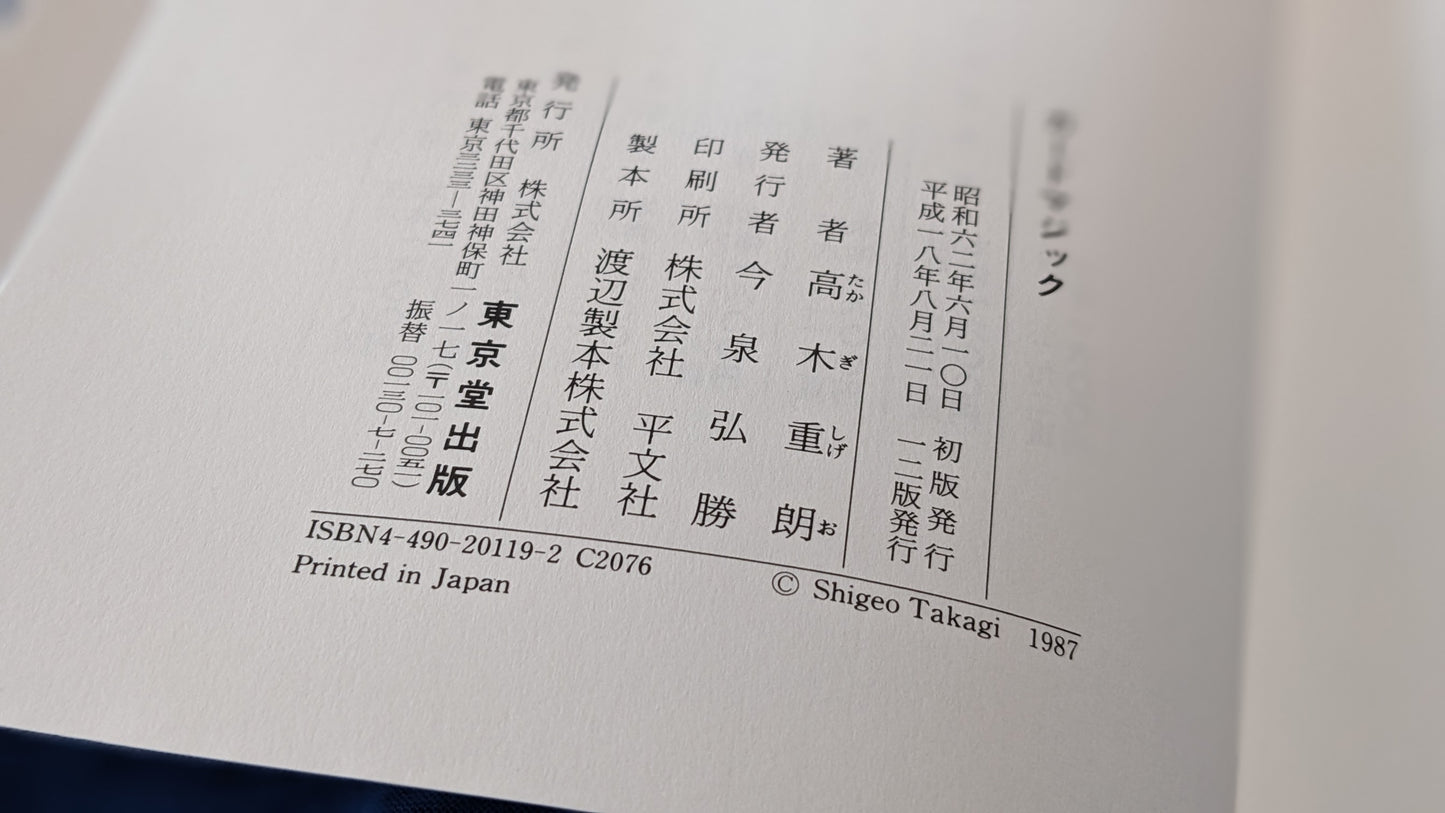 マジック
昭和六二年六月一〇日 初版発行
平成一八年八月二一日 一二版発行
著者 高木重朗
たかぎしげお
発行者 今泉弘勝
印刷所 株式会社 平文社
製本所 渡辺製本株式会社
発行所 株式会社 東京堂出版
東京都千代田区神田神保町一ノ一七(〒一〇一-〇〇五一)
電話 東京三二三三―三七四一 振替 〇〇一三〇-七-二七〇
ISBN4-490-20119-2 C2076 © Shigeo Takagi 1987
Printed in Japan